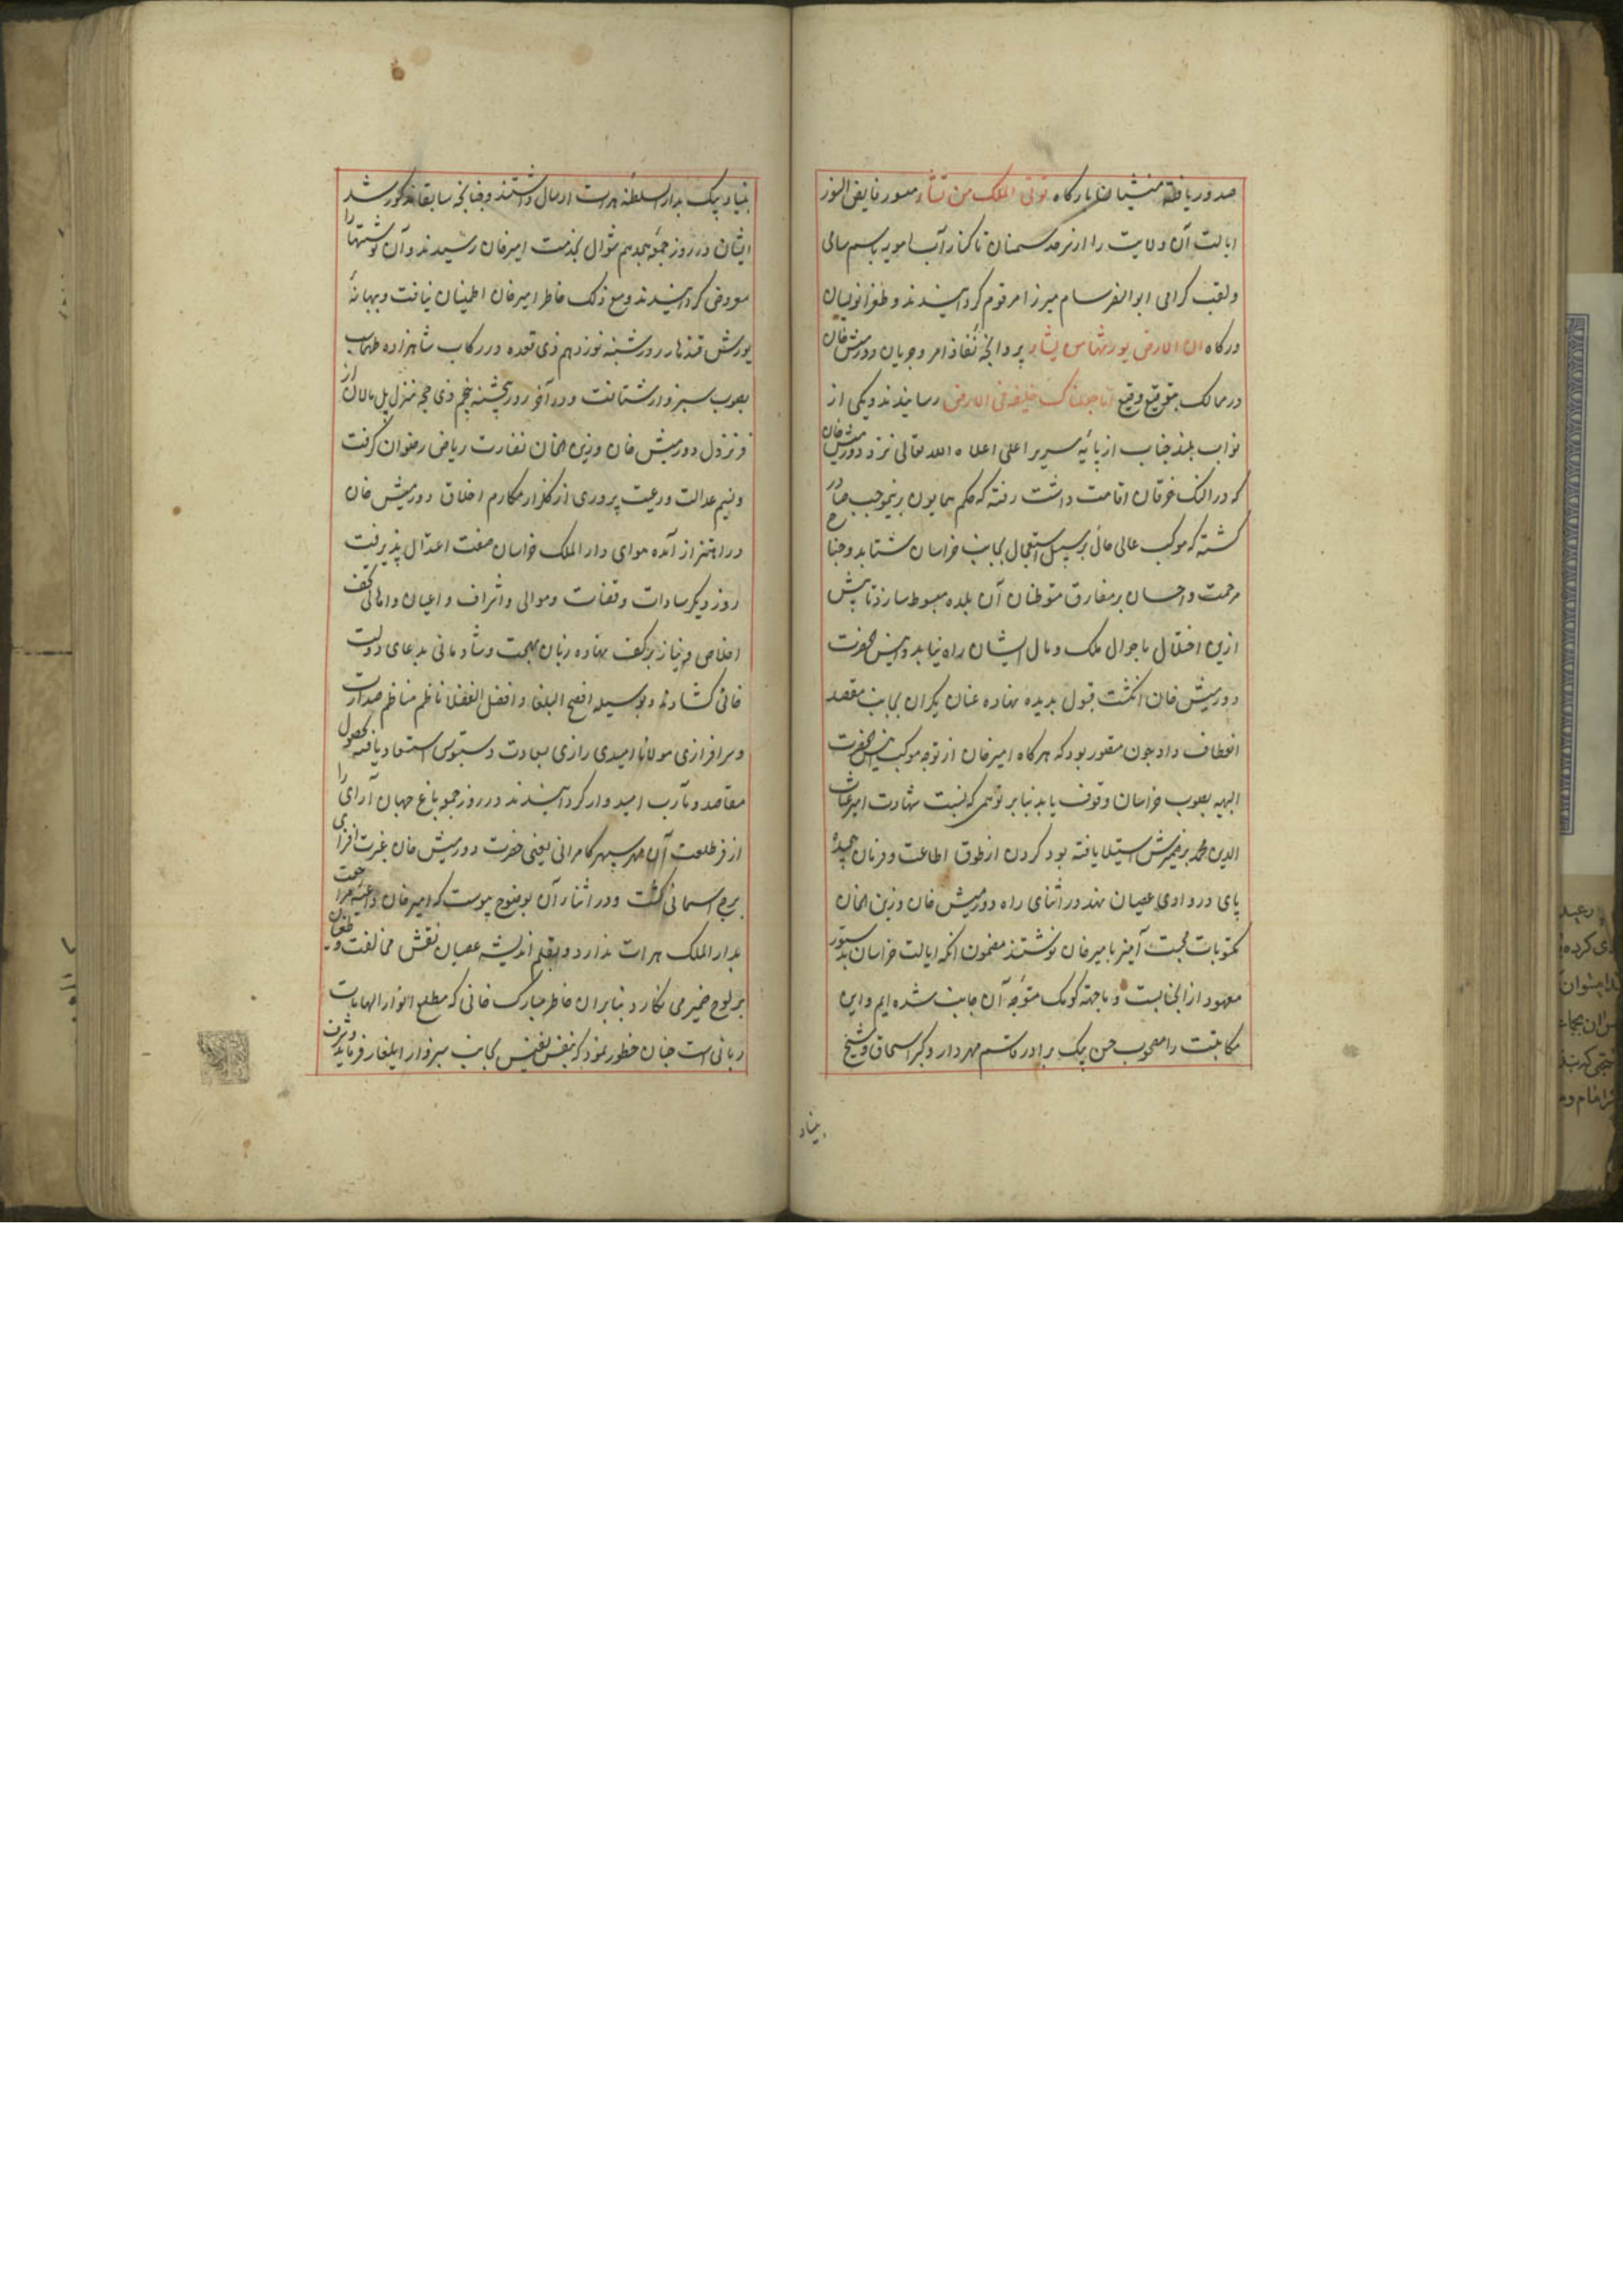 صدور یافته منشیان بارکاه توتی الملک من تشاء منشور فایض النور
ایالت آن ولایت را از سرحد سمنان تا کنار آب امویه باسم سامی
و لقب کرامی ابوالنصر سام میرزا مرقوم کردانیدند و طغرانویسان
درکاه ان الارض یورثها من یشاء پروانچهٔ نفاذ امر و جریان دورمیش خان
در ممالک بتوقیع وقیع انا جعلناک خلیفه فی الارض رسانیدند و یکی از
نواب بلند جناب از پایه سریر اعلی اعلاه الله تعالی نزد دورمیش خان
که در النک خرقان اقامت داشت رفته که حکم همایون برینموجب صادر
کشته که موکب عالی خانی بر سبیل استعجال بجانب خراسان شتابد و جناح
مرحمت و احسان بر مفارق متوطنان آن بلده مبسوط سازد تا پیش
ازین اختلال باحوال ملک و مال ایشان راه نیابد و انیس الحضرت
دورمیش خان انکشت قبول بر دیده نهاده عنان یکران بجانب مقصد
انعطاف داد چون مقرر بود که هرکاه امیرخان از توجه موکب انیس الحضرت
البهیه بصوب خراسان وقوف یابد بنابر توهمی که بنسبت شهادت امیر غیاث
الدین محمد بر ضمیرش استیلا یافته بود کردن از طوق اطاعت و فرمان پیچیده
پای در وادی عصیان نهد در اثنای راه دورمیش خان و زین الخان
مکتوبات محبت آمیز بامیرخان نوشتند مضمون انکه ایالت خراسان بدستور
معهود از آنجانبست و ما جهة کومک متوجه آن جانب شده ایم و این
مکاتبت را مصحوب حسن بیک برادر قاسم مهردار و کبر اسحاق و شیخ
بنیاد
بنیاد بیک بدار السلطنه هرات ارسال داشتند و چنانچه سابقا مذکور شد
ایشان در روز جمعه هجدهم شوال بخدمت امیرخان رسیدند و آن نوشتها را
معروض کردانیدند و مع ذلک خاطر امیرخان اطمینان نیافت و بهانهٔ
یورش قندهار روز شنبه نوزدهم ذی قعده در رکاب شاهزاده طهماسب
بصوب سبزوار شتافت و در آخر روز پنجشنبه پنجم ذی حجه منزل پل مالان از
فر نزول دورمیش خان و زین الخان نضارت ریاض رضوان کرفت
و نسیم عدالت و رعیت پروری از کلزار مکارم اخلاق دورمیش خان
در اهتزاز آمده هوای دار الملک خراسان صفت اعتدال پذیرفت
روز دیکر سادات و قضات و موالی و اشراف و اعیان و اهالی کف
اخلاص و نیاز بر کف نهاده زبان بهجت و شادمانی بدعای دولت
خانی کشادند و بوسیله افصح البلغا و افضل الفضلا ناظم مناظم صدارت
و سرافرازی مولانا امیدی رازی بسعادت دستبوس استسعاد یافته بحصول
مقاصد و مآرب امیدوار کردانیدند در روز جمعه باغ جهان آرای را
از فر طلعت آن مهر سپهر کامرانی یعنی حضرت دورمیش خان غیرت افزای
برج اسمانی کشت و در اثناء آن بوضوح پیوست که امیرخان داعیه مراجعت
بدار الملک هرات ندارد و بقلم اندیشه عصیان نقش مخالفت و طغیان
بر لوح ضمیر می نکارد بنابران خاطر مبارک خانی که مطلع انوار الهامات
ربانی است چنان خطور نمود که بنفس نفیس بجانب سبزوار ایلغار فرماید و شرف